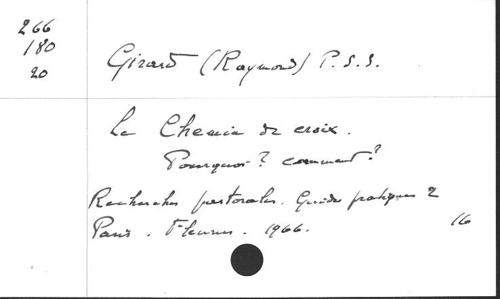 266
180
20
Girard (Raymond) P.S.S.
Le Chemin de croix.
Pourquoi? comment?
Recherches pastorales. Guides pratiques 2
Paris. Fleurus. 1966.
16